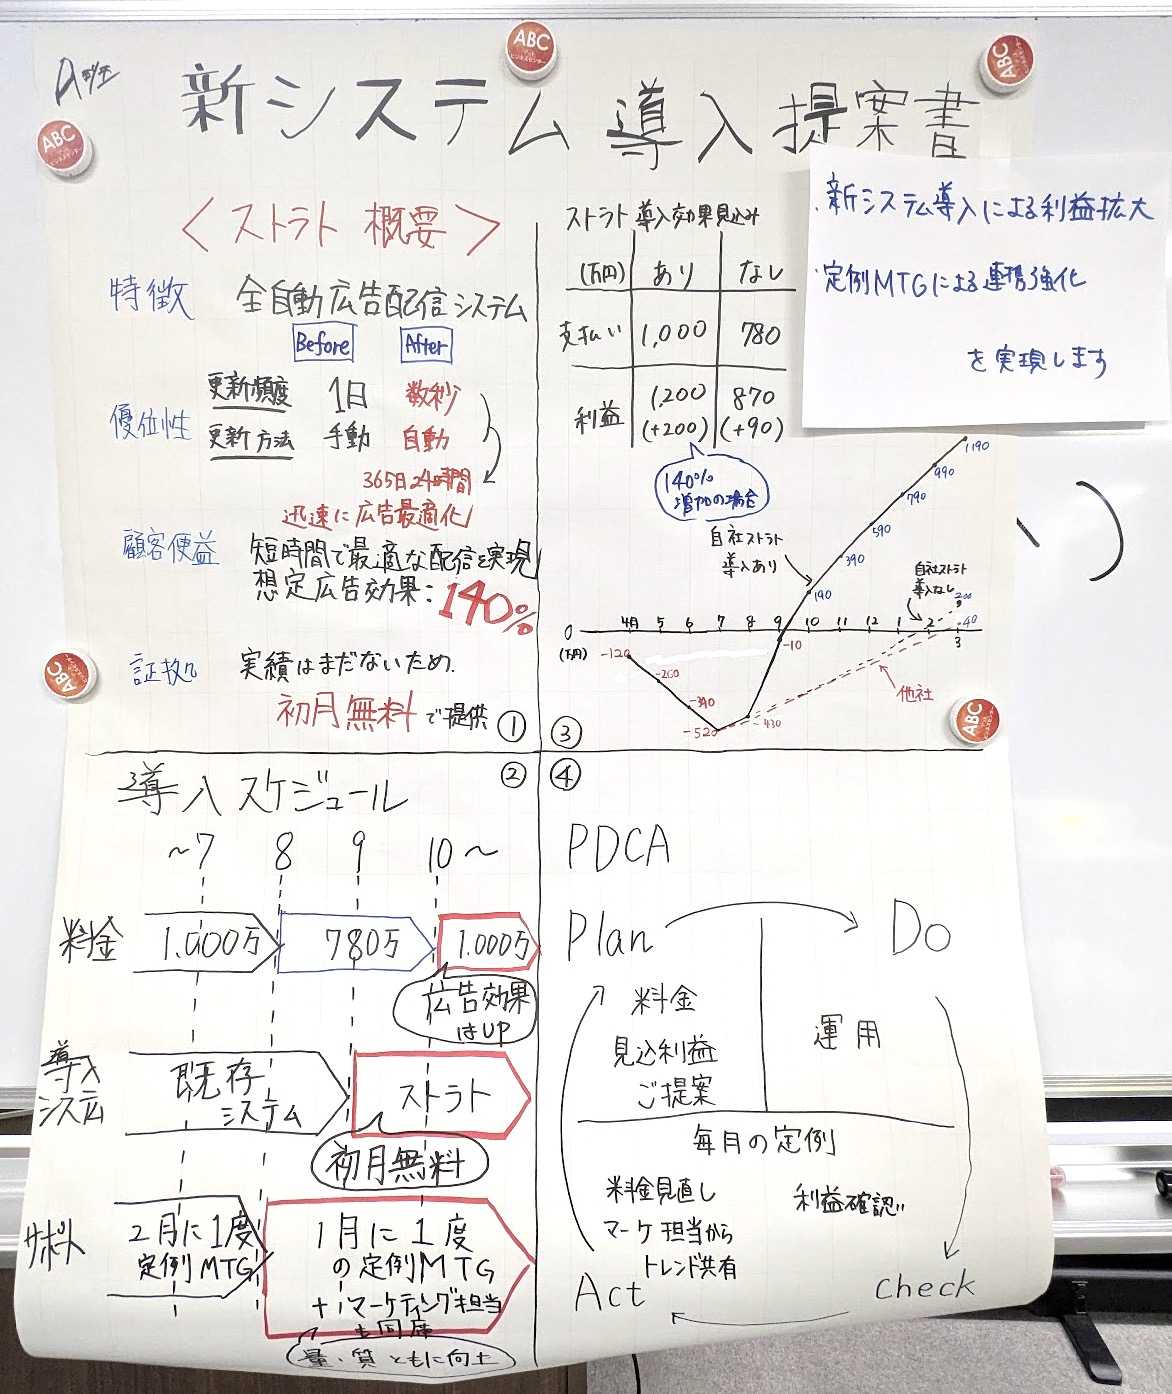 新システム導入提案書
・新システム導入による利益拡大
・定例MTGによる連携強化
を実現します
＜ストラト 概要＞
特徴 全自動広告配信システム
Before After
優位性
更新頻度 1日 数秒
更新方法 手動 自動
365日24時間
迅速に広告最適化
顧客便益 短時間で最適な配信を実現
想定広告効果：140%
証拠 実績はまだないため.
初月無料で提供
①
ストラト導入効果見込み
(万円) あり なし
支払い 1,000 780
利益 1,200 870
(+200) (+90)
140%
増加の場合
自社ストラト
導入あり
自社ストラト
導入なし
他社
1190
990
790
590
390
190
200
40
0
(万円)
4月 5 6 7 8 9 10 11 12 1 2 3
-10
-120
-260
-390
-520
-430
③
導入スケジュール
②
～7 8 9 10～
料金 1.000万 780万 1.000万
広告効果
はUP
導入
システム
既存
システム
ストラト
初月無料
サポート
2月に1度
定例MTG
1月に1度
の定例MTG
+マーケティング担当
も同席
量・質ともに向上
④
PDCA
Plan Do
料金
見込利益
ご提案
運用
毎月の定例
料金見直し
マーケ担当から
トレンド共有
利益確認
Act Check
ABC
ABC
ABC
ABC
ABC